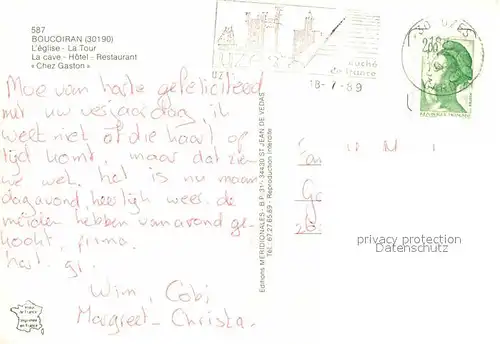 587
BOUCOIRAN (30190)
L'église - La Tour
La cave - Hôtel - Restaurant
« Chez Gaston »
Moe van harte gefeliciteed
met uw verjaardag, ik
weet niet of die kaart op
tijd komt, maar dat zien
we wel. het is nu maan
dagavond, heerlijk weer. de
meiden hebben vanavond ge-
kookt, prima.
hart. gr.
Wim, Cobi
Margreet - Christa.
Editions MERIDIONALES - B.P. 31 - 34430 ST JEAN DE VEDAS
Tél. 67.27.65.89 - Reproduction interdite
UZES
duché
de france
18-7-89
30 UZES
privacy protection
Datenschutz